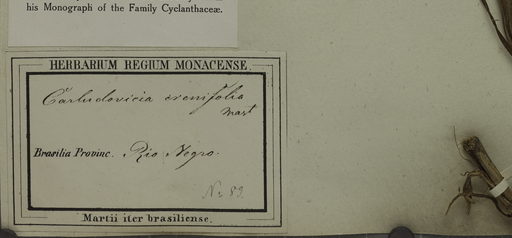 his Monograph of the Family Cyclanthaceæ.
HERBARIUM REGIUM MONACENSE.
Carludovicia crenifolia
Mart
Brasilia Provinc. Rio Negro.
No 89.
Martii iter brasiliense.